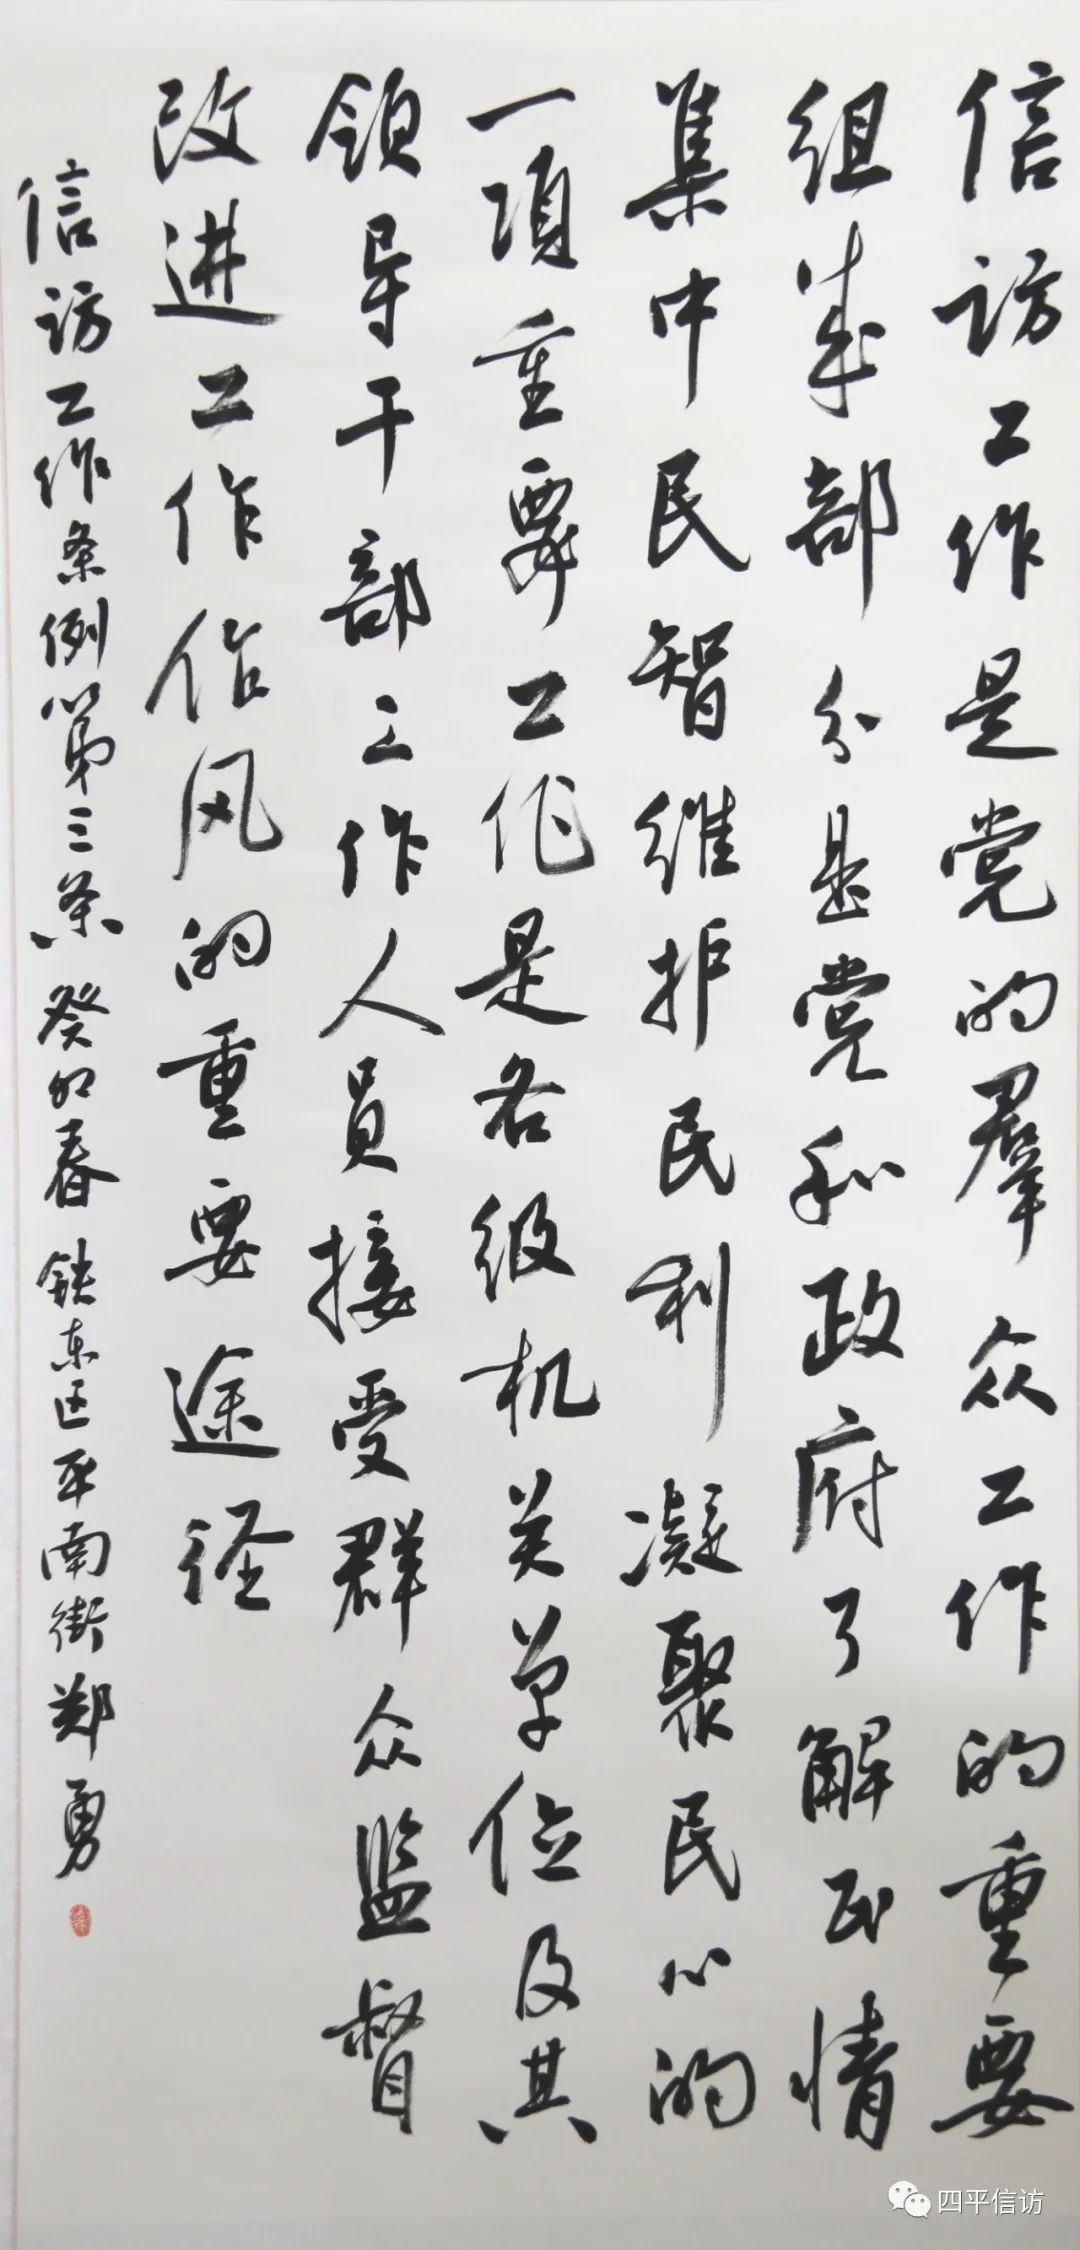 信访工作是党的羣众工作的重要
组成部分是党和政府了解民情
集中民智维护民利凝聚民心的
一项重要工作是各级机关单位及其
领导干部工作人员接受群众监督
改进工作作风的重要途径
信访工作条例第三条 癸卯春 铁东区平南街郑勇
四平信访